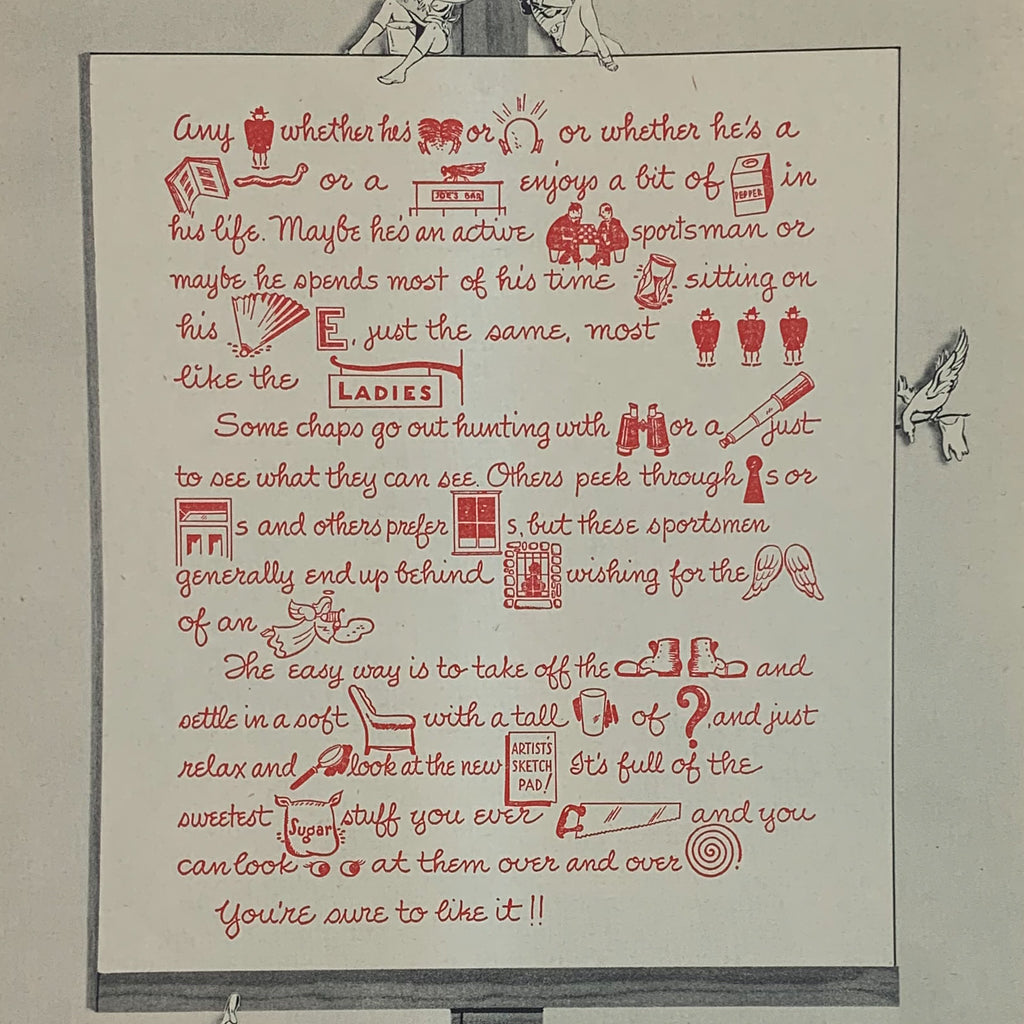 Any whether he's or or whether he's a
or a JOE'S BAR enjoys a bit of PEPPER in
his life. Maybe he's an active sportsman or
maybe he spends most of his time sitting on
his E, just the same, most
like the LADIES
Some chaps go out hunting with or a just
to see what they can see. Others peek through s or
s and others prefer s, but these sportsmen
generally end up behind wishing for the
of an
The easy way is to take off the and
settle in a soft with a tall of ?, and just
relax and look at the new ARTIST'S SKETCH PAD! It's full of the
sweetest Sugar stuff you ever and you
can look at them over and over !
You're sure to like it!!